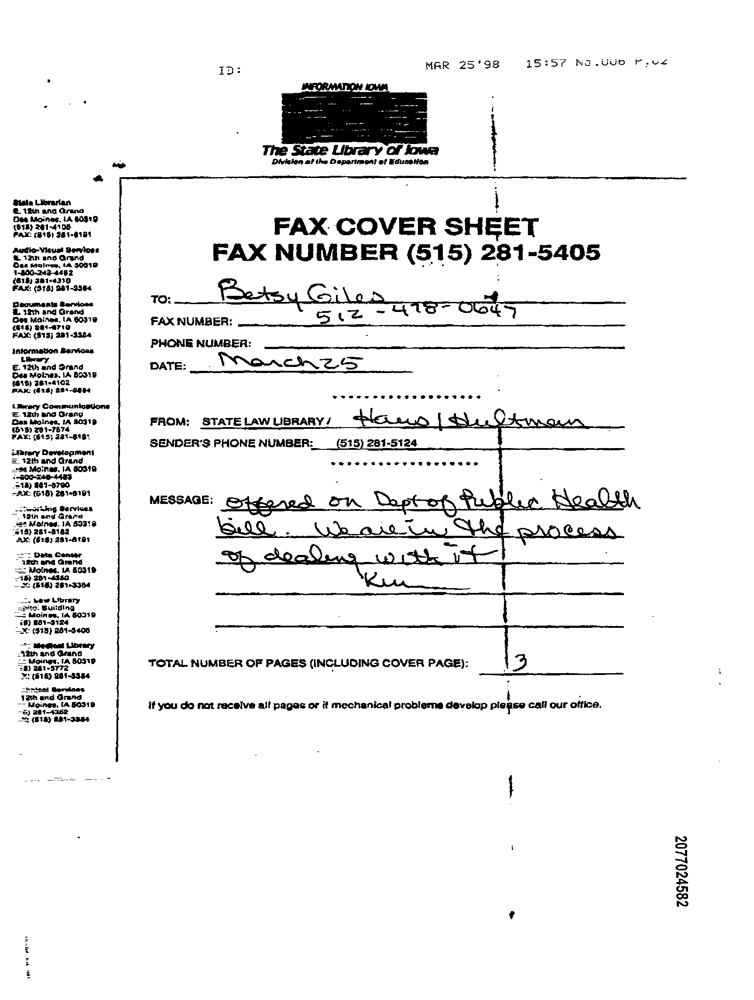 ID:
MAR 25'98 15:57 No.006 P.02
INFORMATION IOWA
The State Library of Iowa
Division of the Department of Education
State Librarian
E. 12th and Grand
Des Moines, IA 50319
(515) 281-4105
FAX: (515) 281-6191
Audio-Visual Services
E. 12th and Grand
Des Moines, IA 50319
1-800-248-4482
(515) 281-4310
FAX: (515) 281-3384
Documents Services
E. 12th and Grand
Des Moines, IA 50319
(515) 281-6719
FAX: (515) 281-3384
Information Services
Library
E. 12th and Grand
Des Moines, IA 50319
(515) 281-4102
FAX: (515) 281-3384
Library Communications
E. 12th and Grand
Des Moines, IA 50319
(515) 281-7574
FAX: (515) 281-6191
Library Development
E. 12th and Grand
Des Moines, IA 50319
1-800-248-4483
(515) 281-5790
FAX: (515) 281-6191
Networking Services
12th and Grand
Moines, IA 50319
(515) 281-6152
FAX: (515) 281-6191
Data Center
12th and Grand
Moines, IA 50319
281-4350
(515) 281-3384
Law Library
Building
Moines, IA 50319
281-5124
(515) 281-5405
Medical Library
12th and Grand
Moines, IA 50319
281-5772
(515) 281-3384
Services
12th and Grand
Moines, IA 50319
281-4362
(515) 281-3384
FAX COVER SHEET
FAX NUMBER (515) 281-5405
TO: Betsy Giles
FAX NUMBER: 512-478-0647
PHONE NUMBER:
DATE: March 25
FROM: STATE LAW LIBRARY / Haus / Hultman
SENDER'S PHONE NUMBER: (515) 281-5124
MESSAGE: offered on Dept of Public Health
bill. We are in the process
of dealing with it
Ken
TOTAL NUMBER OF PAGES (INCLUDING COVER PAGE): 3
If you do not receive all pages or if mechanical problems develop please call our office.
2077024582